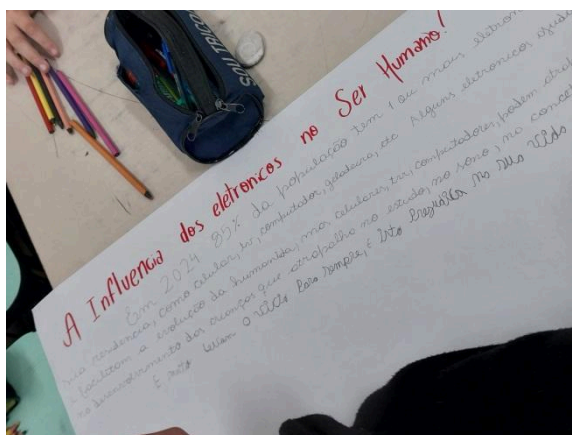 SOU TRICO
A Influencia dos eletronicos no Ser Humano!
Em 2024 89% da população tem 1 ou mais eletron
sua residencia, como celular, tv, computador, geladeira, etc Alguns eletronicos ajuda
e facilitam a evolução da humanidade, mas celulares, tv, computadores, podem atra
no desenvolvimento das crianças que atrapalha no estudo, no sono, no concet
E isto levam o vicio para sempre, E isto prejudica na sua vida